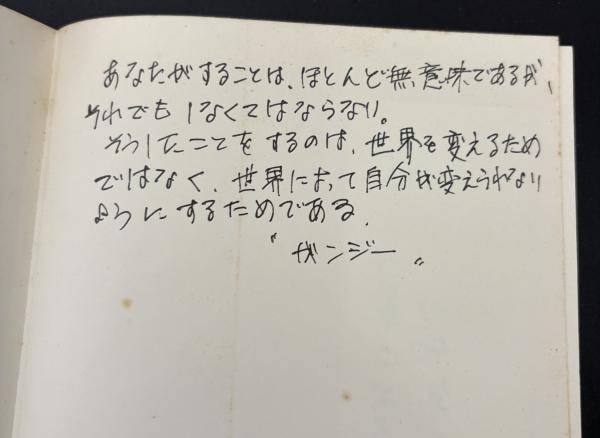 あなたがすることは、ほとんど無意味であるが、
それでもしなくてはならない。
そうしたことをするのは、世界を変えるため
ではなく、世界によって自分が変えられない
ようにするためである.
〝ガンジー〟